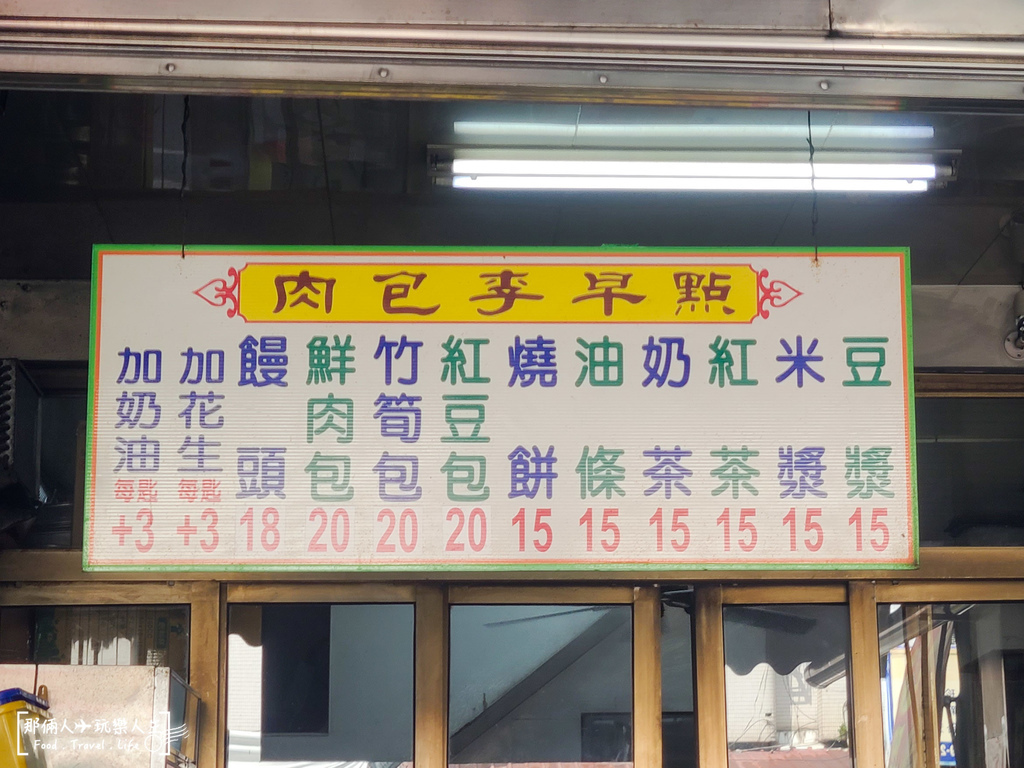 肉包李早點
豆漿 15
米漿 15
紅茶 15
奶茶 15
油條 15
燒餅 15
紅豆包 20
竹筍包 20
鮮肉包 20
饅頭 18
加花生 每匙 +3
加奶油 每匙 +3
那倆人小玩樂人生
Food . Travel . Life